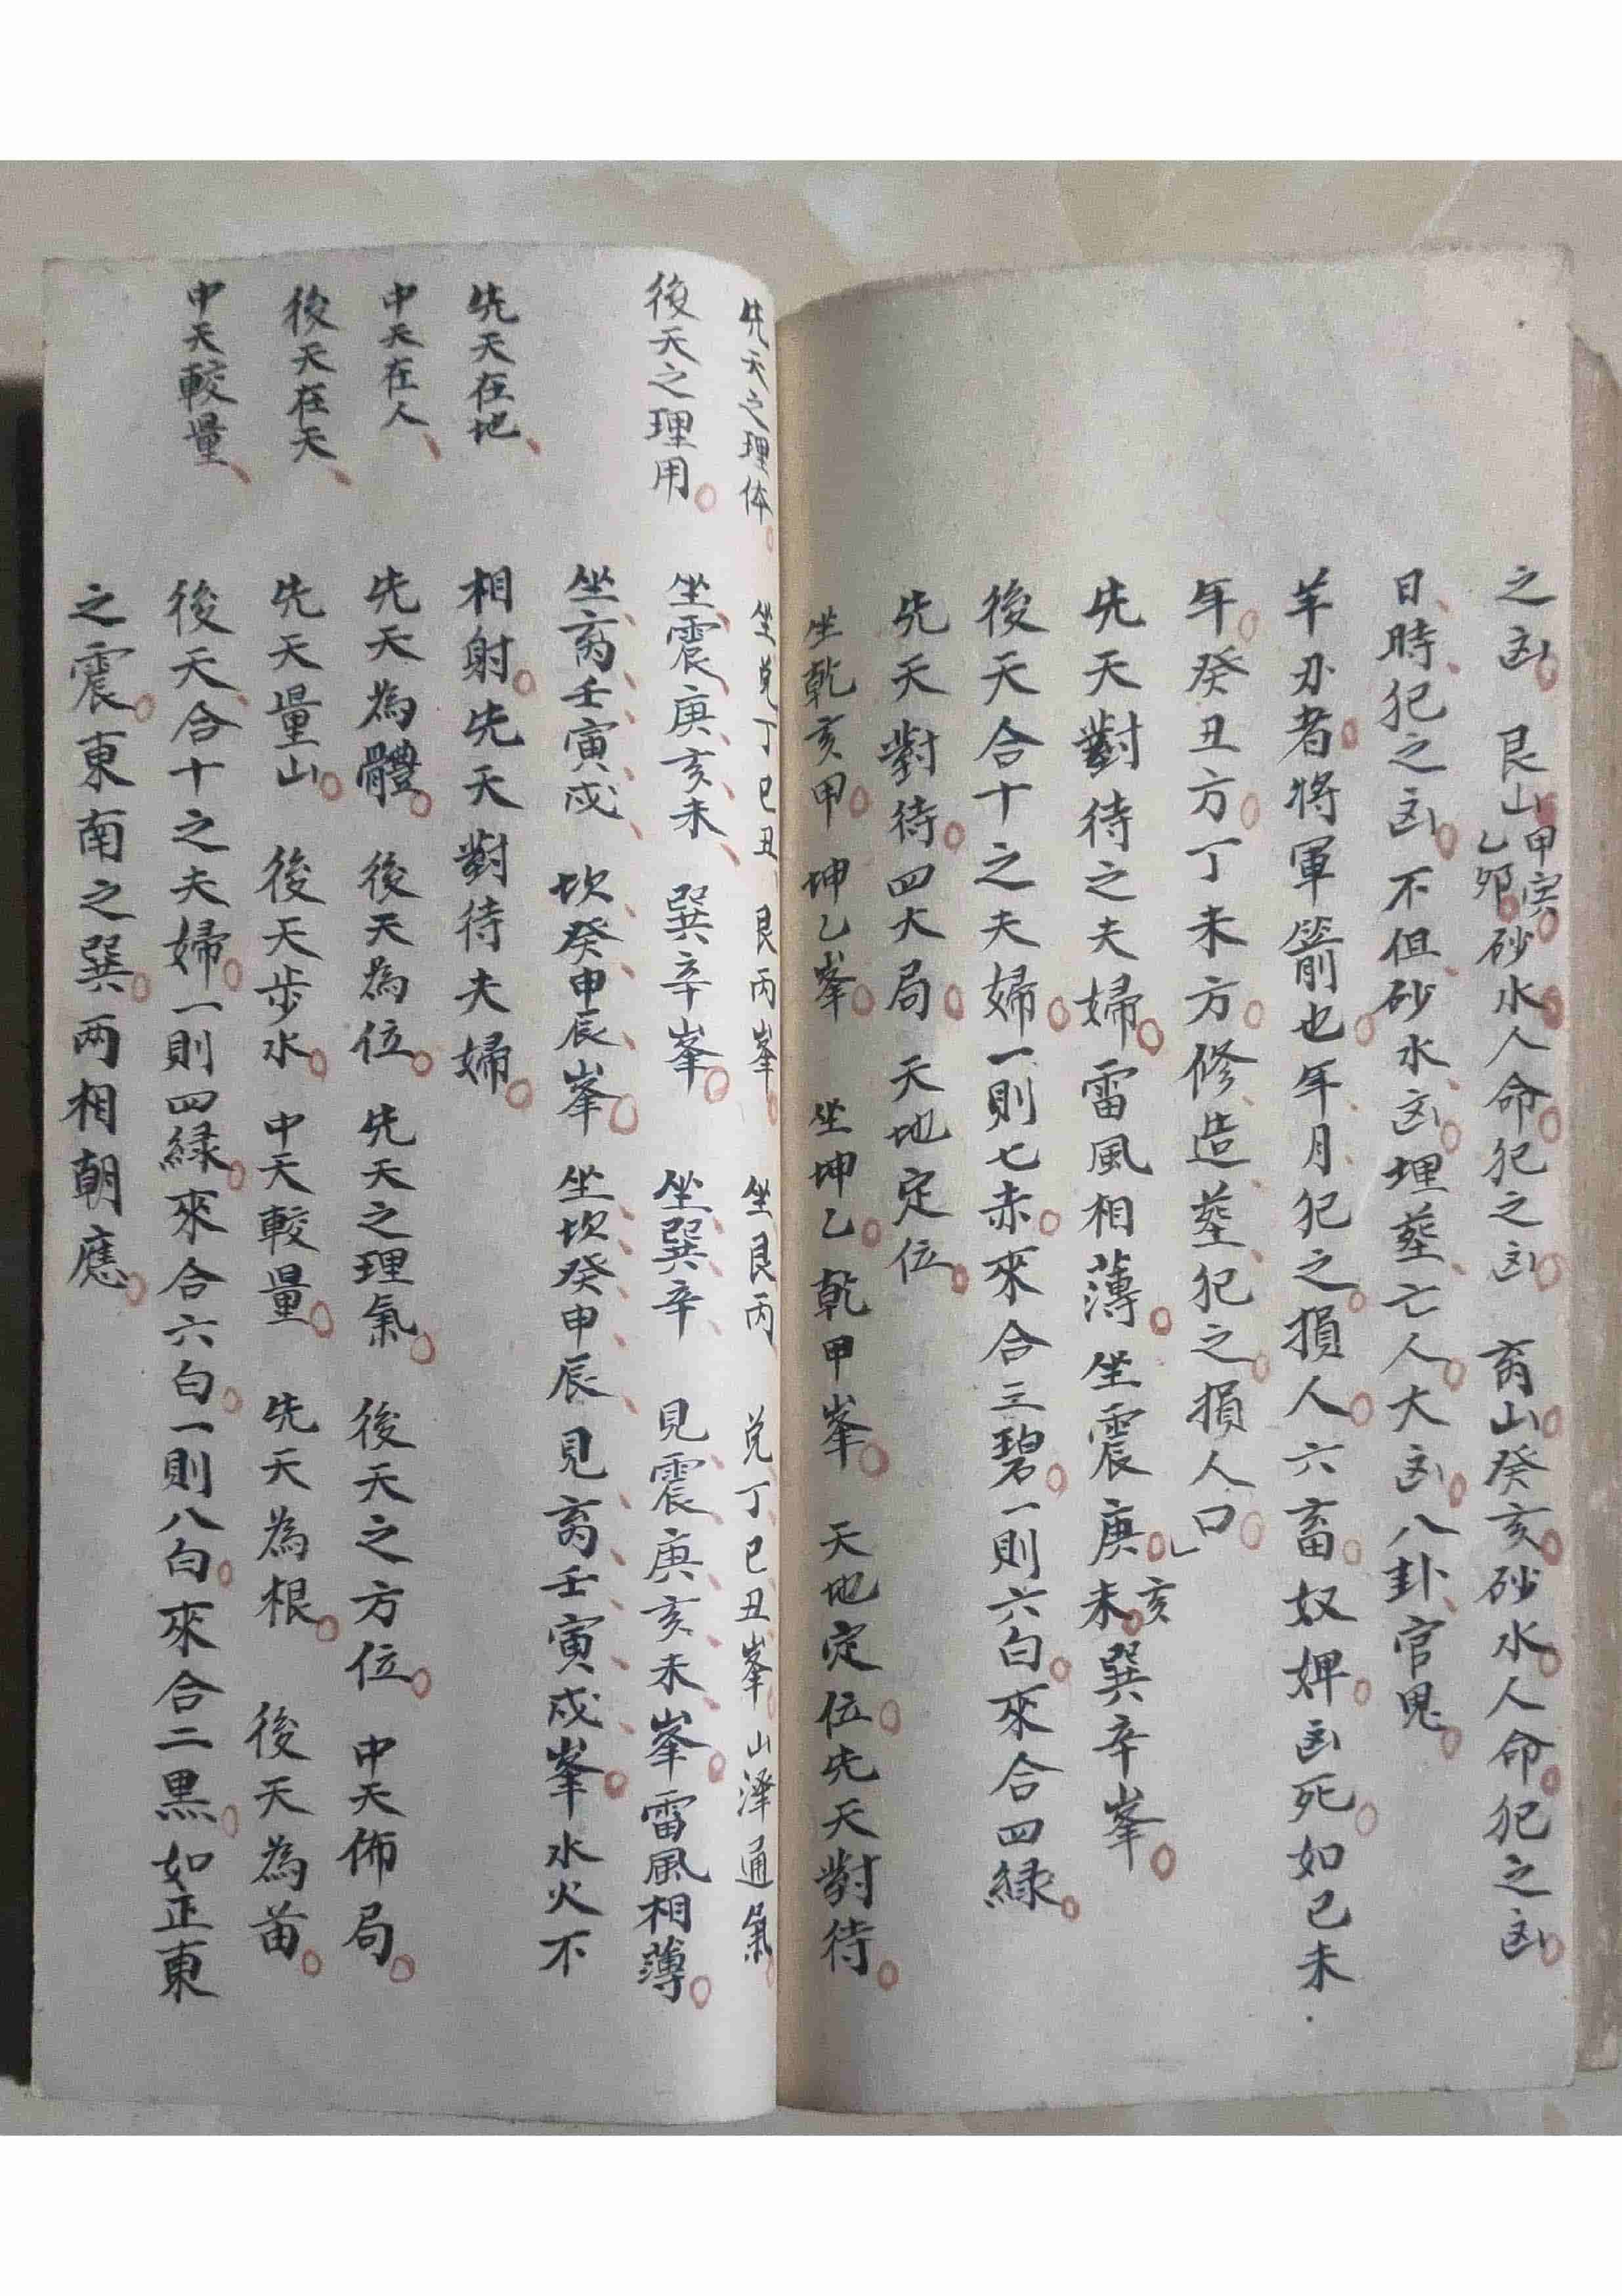 之凶。艮山甲寅乙卯。砂水人命犯之凶。离山癸亥砂水人命犯之凶。
日時犯之凶。不但砂水凶。埋葬亡人大凶。八卦官鬼。
羊刃者將軍箭也。年月犯之損人。六畜奴婢凶死。如己未
年。癸丑方。丁未方。修造葬犯之損人口。
先天對待之夫婦。雷風相薄。坐震庚亥未。巽辛峯。
後天合十之夫婦。一則七赤。來合三碧。一則六白。來合四緑。
先天對待。四大局。天地定位。
坐乾亥甲。坤乙峯。坐坤乙。乾甲峯。天地定位。先天對待。
先天之理体。
坐兑丁巳丑、艮丙峯。坐艮丙、兑丁巳丑峯。山澤通氣。
後天之理用。
坐震庚亥未、巽辛峯。坐巽辛、見震庚亥未峯。雷風相薄。
坐离壬寅戌、坎癸申辰峯。坐坎癸申辰、見离壬寅戌峯。水火不
先天在地、
相射。先天對待夫婦。
中天在人、
先天為體。後天為位。先天之理氣。後天之方位。中天佈局。
後天在天、
先天量山。後天步水。中天較量。先天為根。後天為苗。
中天較量、
後天合十之夫婦。一則四緑。來合六白。一則八白。來合二黑。如正東
之震。東南之巽。两相朝應。